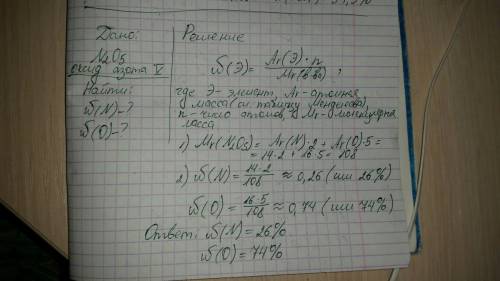 Дано:
N₂O₅
оксид азота V
Найти:
ω(N)-?
ω(O)-?
Решение
ω(Э)= Ar(Э)·n / Mr(в-ва) ,
где Э- элемент, Ar- атомная
масса (см. таблицу Менделеева),
n- число атомов, Mr- молекулярная
масса
1) Mr(N₂O₅) = Ar(N)·2 + Ar(O)·5 =
= 14·2 + 16·5 = 108
2) ω(N) = 14·2 / 108 ≈ 0,26 (или 26%)
ω(O) = 16·5 / 108 ≈ 0,74 (или 74%)
Ответ: ω(N) = 26%
ω(O) = 74%